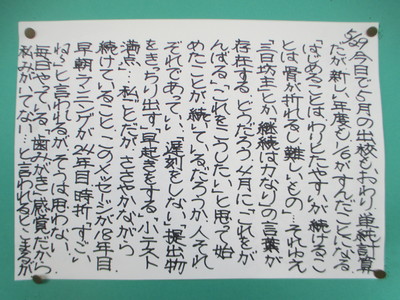 5/29 今日で5月の出校もおわり、単純計算
だが新しい年度も1/6がすんだことになる
「はじめることはわりとたやすいが続けるこ
とは骨が折れるし難しいもの」…それゆえ
「三日坊主」とか「継続は力なり」の言葉が
存在する。どうだろう、4月に「これをが
んばる」「これをこうしたい」と思って始
めたことが続いているだろうか。人それ
ぞれであっていい。「遅刻をしない」「提出物
をきっちり出す」「早起きをする」「小テスト
満点」…私ごとだが、ささやかながら
続けていること…このメッセージが18年目
早朝ランニングが24年目、時折「すごい
ね」と言われるが、そうは思わない。
毎日やっている「歯みがき」感覚だから
私みがいてない…と言われるとこまるが